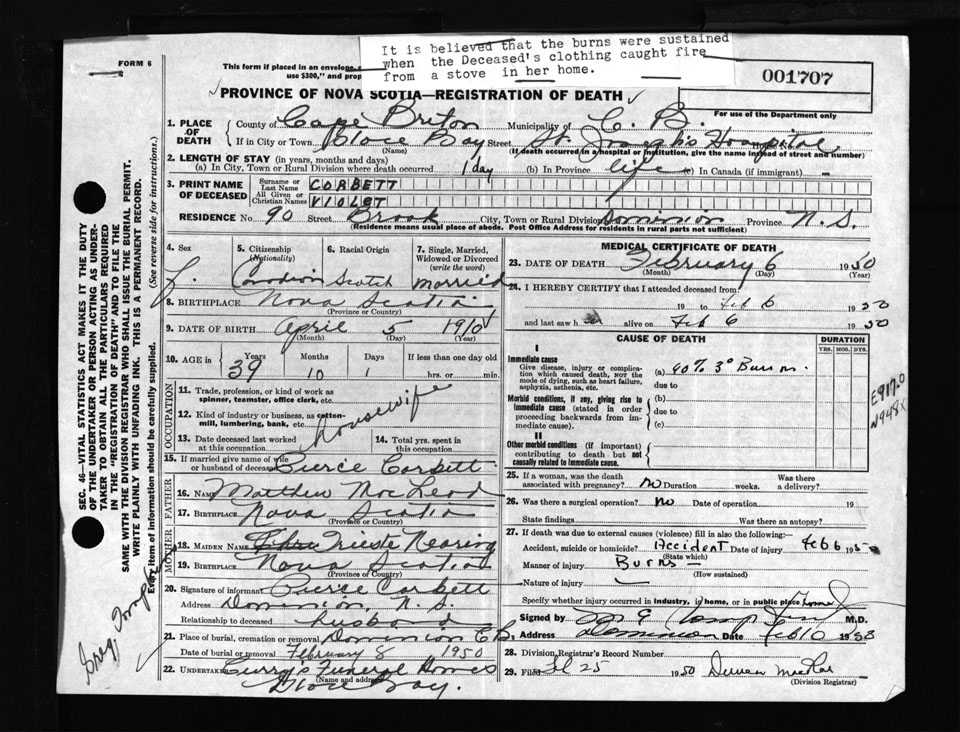 FORM 6
This form if placed in an envelope,
use $300," and
It is believed that the burns were sustained
when the Deceased's clothing caught fire
from a stove in her home.
001707
For use of the Department only
PROVINCE OF NOVA SCOTIA—REGISTRATION OF DEATH
1. PLACE OF DEATH
County of Cape Breton Municipality of C. B.
If in City or Town Glace Bay Street St. Joseph's Hospital
(If death occurred in a hospital or institution, give the name instead of street and number)
2. LENGTH OF STAY (in years, months and days)
(a) In City, Town or Rural Division where death occurred 1 day (b) In Province life (c) In Canada (if immigrant) —
3. PRINT NAME OF DECEASED
Surname or Last Name CORBETT
All Given or Christian Names VIOLET
RESIDENCE No. 90 Street Brook City, Town or Rural Division Dominion Province N.S.
(Residence means usual place of abode. Post Office Address for residents in rural parts not sufficient)
4. Sex f.
5. Citizenship (Nationality) Canadian
6. Racial Origin Scotch
7. Single, Married, Widowed or Divorced (write the word) married
8. BIRTHPLACE Nova Scotia
(Province or Country)
9. DATE OF BIRTH April 5 1910
(Month) (Day) (Year)
10. AGE in Years 39 Months 10 Days 1 If less than one day old
hrs. or min.
OCCUPATION
11. Trade, profession, or kind of work as spinner, teamster, office clerk, etc.
12. Kind of industry or business, as cotton-mill, lumbering, bank, etc.
Housewife
13. Date deceased last worked at this occupation
14. Total yrs. spent in this occupation
15. If married give name of wife or husband of deceased Pierce Corbett
FATHER
16. NAME Matthew MacLeod
17. BIRTHPLACE Nova Scotia
(Province or Country)
MOTHER
18. MAIDEN NAME Trieste Nearing
19. BIRTHPLACE Nova Scotia
(Province or Country)
20. Signature of informant Pierce Corbett
Address Dominion, N.S.
Relationship to deceased husband
21. Place of burial, cremation or removal Dominion C.B.
Date of burial or removal February 8 1950
22. UNDERTAKER Curry's Funeral Homes
(Name and address)
Glace Bay.
MEDICAL CERTIFICATE OF DEATH
23. DATE OF DEATH February 6 1950
(Month) (Day) (Year)
24. I HEREBY CERTIFY that I attended deceased from:
19 to Feb 6 1950
and last saw her alive on Feb 6 1950
CAUSE OF DEATH
DURATION
YRS. MOS. DYS.
I
Immediate cause
Give disease, injury or complication which caused death, not the mode of dying, such as heart failure, asphyxia, asthenia, etc.
(a) 90% 3° Burns.
due to
Morbid conditions, if any, giving rise to immediate cause (stated in order proceeding backwards from immediate cause).
(b)
due to
(c)
II
Other morbid conditions (if important) contributing to death but not causally related to immediate cause.
E917.0
N948X
25. If a woman, was the death associated with pregnancy? no Duration weeks. Was there a delivery?
26. Was there a surgical operation? no Date of operation 19
State findings Was there an autopsy?
27. If death was due to external causes (violence) fill in also the following:
Accident, suicide or homicide? Accident Date of injury Feb 6 195
(State which)
Manner of injury Burns —
(How sustained)
Nature of injury —
Specify whether injury occurred in industry, in home, or in public place Home
Signed by M.D.
Address Dominion Date Feb 10 1950
28. Division Registrar's Record Number
29. Filed 25 1950 Duncan MacRae
(Division Registrar)
SEC. 46—VITAL STATISTICS ACT MAKES IT THE DUTY
OF THE UNDERTAKER OR PERSON ACTING AS UNDERTAKER TO OBTAIN ALL THE PARTICULARS REQUIRED
IN THE "REGISTRATION OF DEATH" AND TO FILE THE
SAME WITH THE DIVISION REGISTRAR WHO SHALL ISSUE THE BURIAL PERMIT.
WRITE PLAINLY WITH UNFADING INK. THIS IS A PERMANENT RECORD.
Every item of information should be carefully supplied. (See reverse side for instructions.)